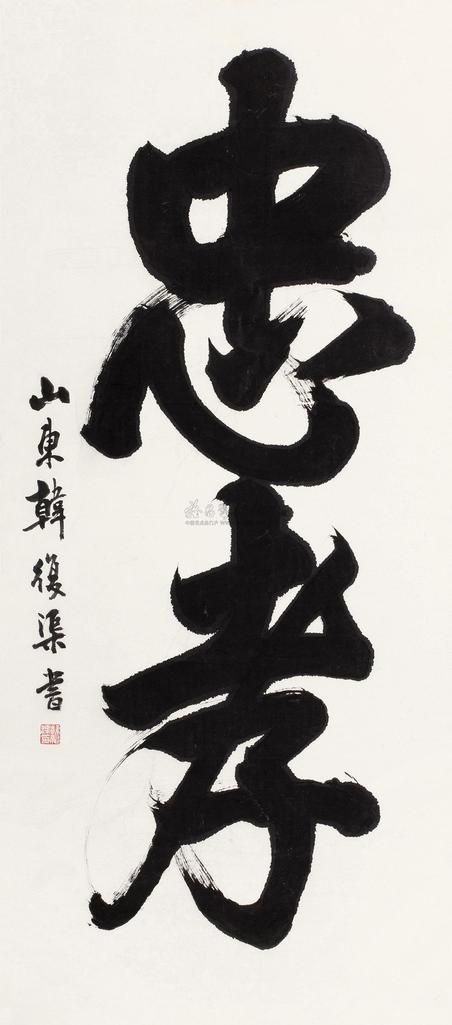 忠孝
山東韓復渠書